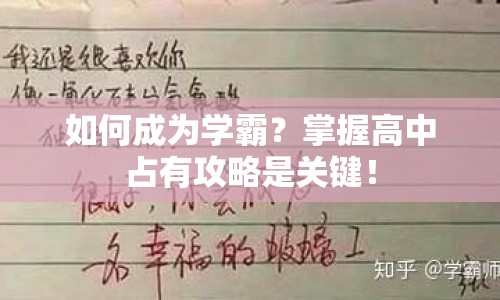 我还是很喜欢你
像二氧化硅与氢氟酸
如何成为学霸？掌握高中
占有攻略是关键！
很好，你会成为
一名幸福的玻璃工.
知乎 @学霸师